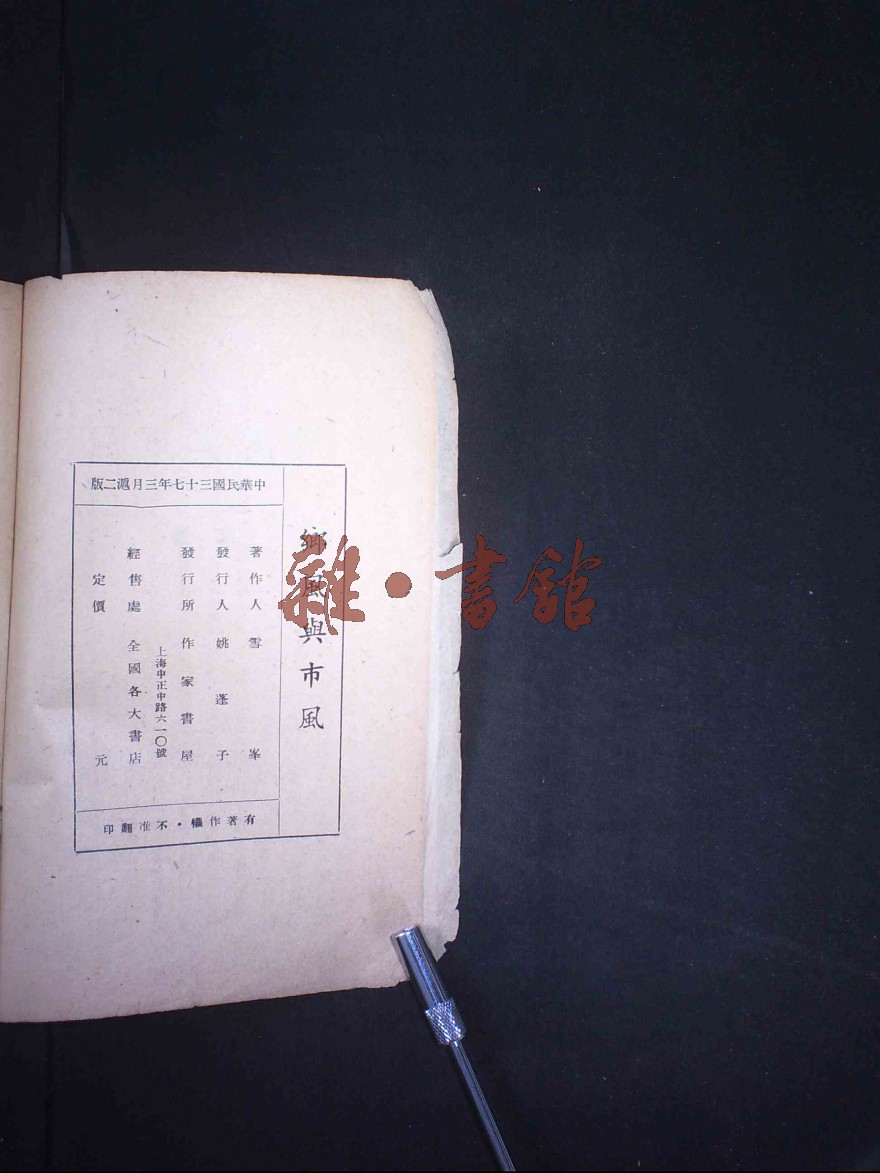 鄉風與市風
中華民國三十七年三月滬二版
著作人 雪峯
發行人 姚蓬子
發行所 作家書屋
上海中正中路六一〇號
經售處 全國各大書店
定價 元
有著作權・不准翻印
雜・書館